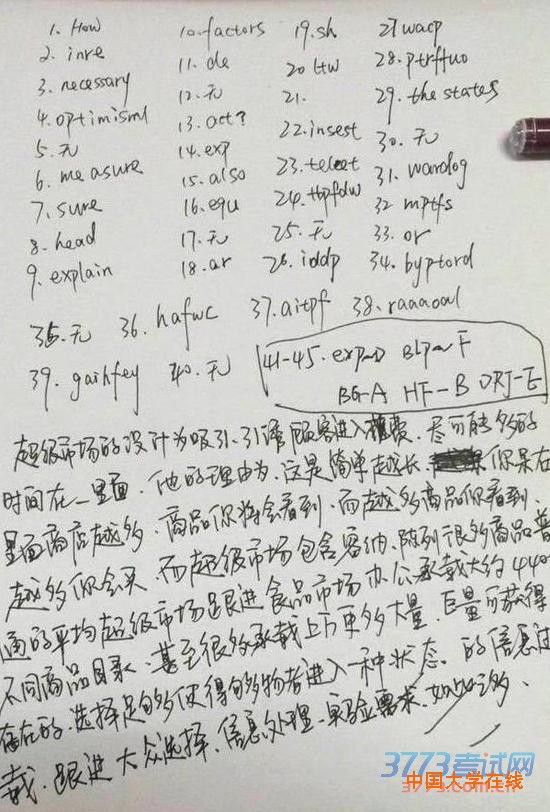 1. How 10. factors 19. sh 27 wacp
2. inre 11. de 20 ttw 28. ptrffuo
3. necessary 12. 无 21. 29. the states
4. optimisml 13. act? 22. insest 30. 无
5. 无 14. exp 23. teleet 31. wardog
6. measure 15. also 24. tbpfdw 32 mptfs
7. sure 16. equ 25. 无 33. or
8. head 17. 无 26. iddp 34. byptord
9. explain 18. ar
35. 无 36. hafwc 37. aitpf 38. raaaoal
39. gaihfey 40. 无 41-45. exp-D BLP~F
BG-A HF-B DRJ-E
超级市场的设计为吸引、引诱顾客进入 尽可能多的
时间在一里面. 他的理由为. 这是简单越长 你呆在
里面商店越多. 商品你将会看到. 而越多商品你看到.
越多你会买. 而超级市场包含容纳、陈列很多商品普
通的平均超级市场跟进食品市场办公承载大约 440
不同商品目录. 甚至很多承载上万更多大量. 巨量可获得
存在的. 选择足够使得购物者进入一种状态. 的信息过
载. 跟进大众选择. 信息处理. 实验需求. 如此之多.
3773考试网
3773.com.cn
中国大学在线